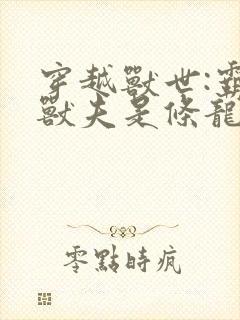 穿越獸世:霸
獸夫是條龍
零點時瘋